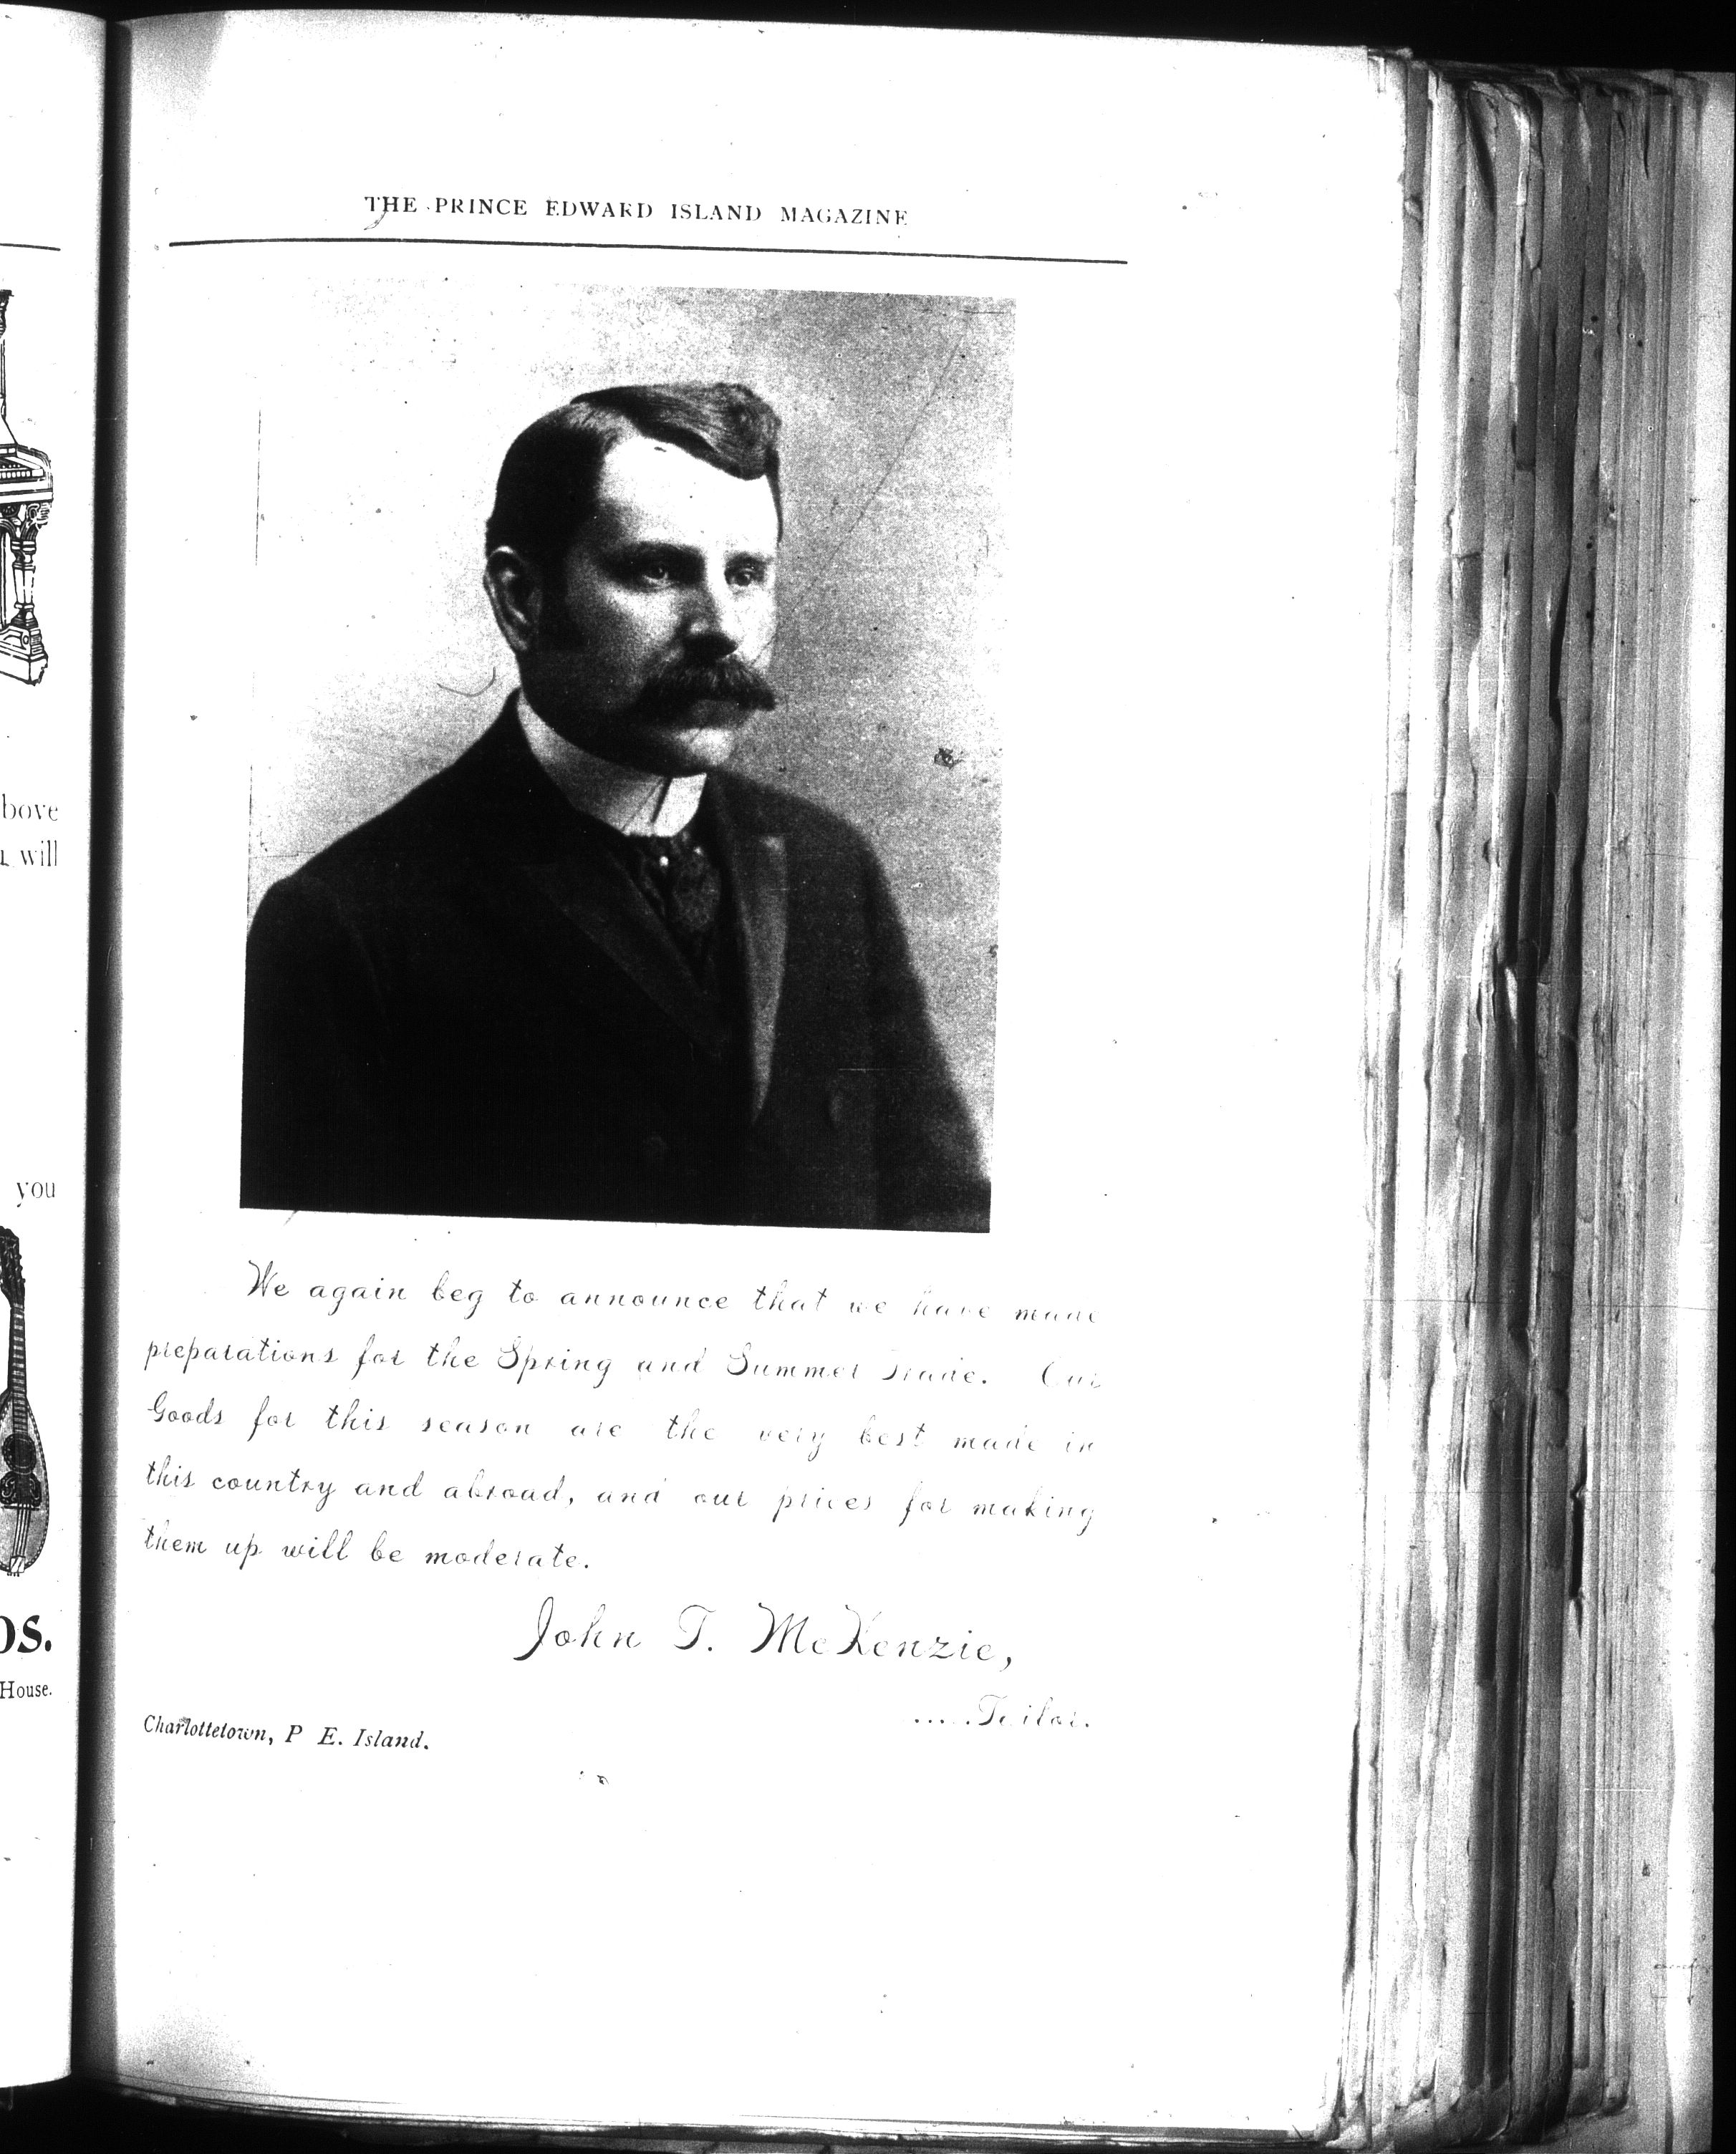 THE PRINCE EDWARD ISLAND MAGAZINE
bove
will
you
OS.
House.
We again beg to announce that we have made
preparations for the Spring and Summer Trade. Our
Goods for this season are the very best made in
this country and abroad, and our prices for making
them up will be moderate.
John T. McKenzie,
.....Tailor.
Charlottetown, P E. Island.